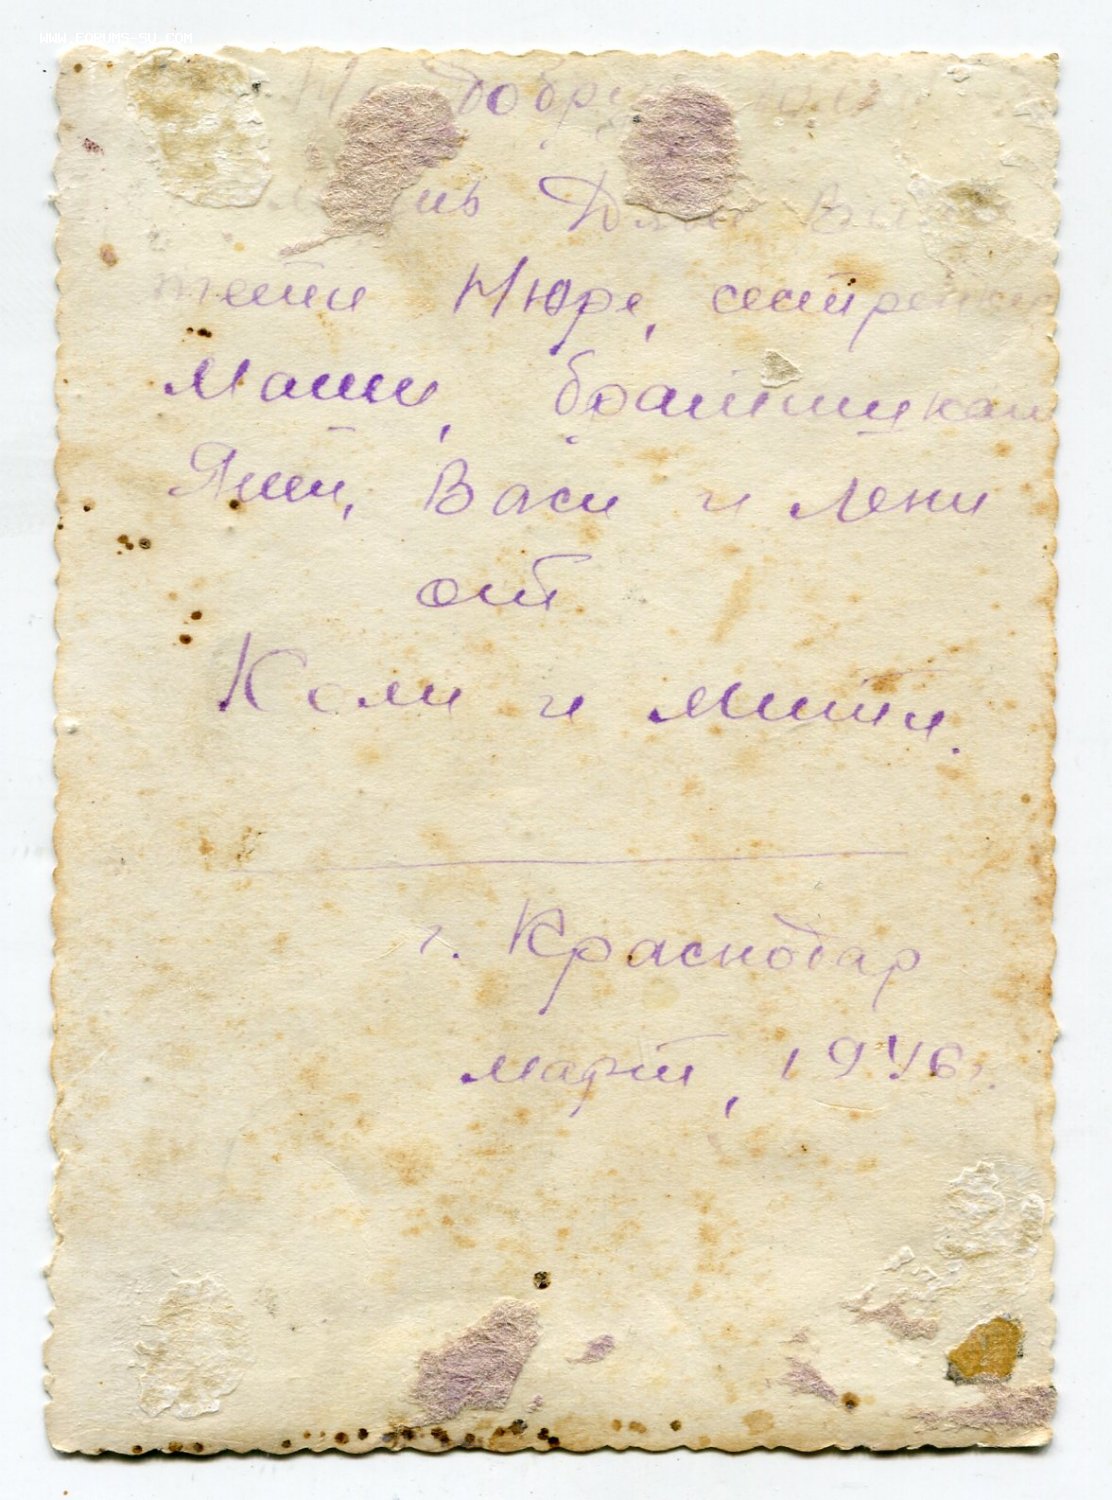 WWW.FORUMS-SU.COM
На добру
Дяде
тети Нюре, сестренке
Маши, братишкам
Яши, Васи и Лени
от
Коли и Мити.
г. Краснодар
март, 1946г.